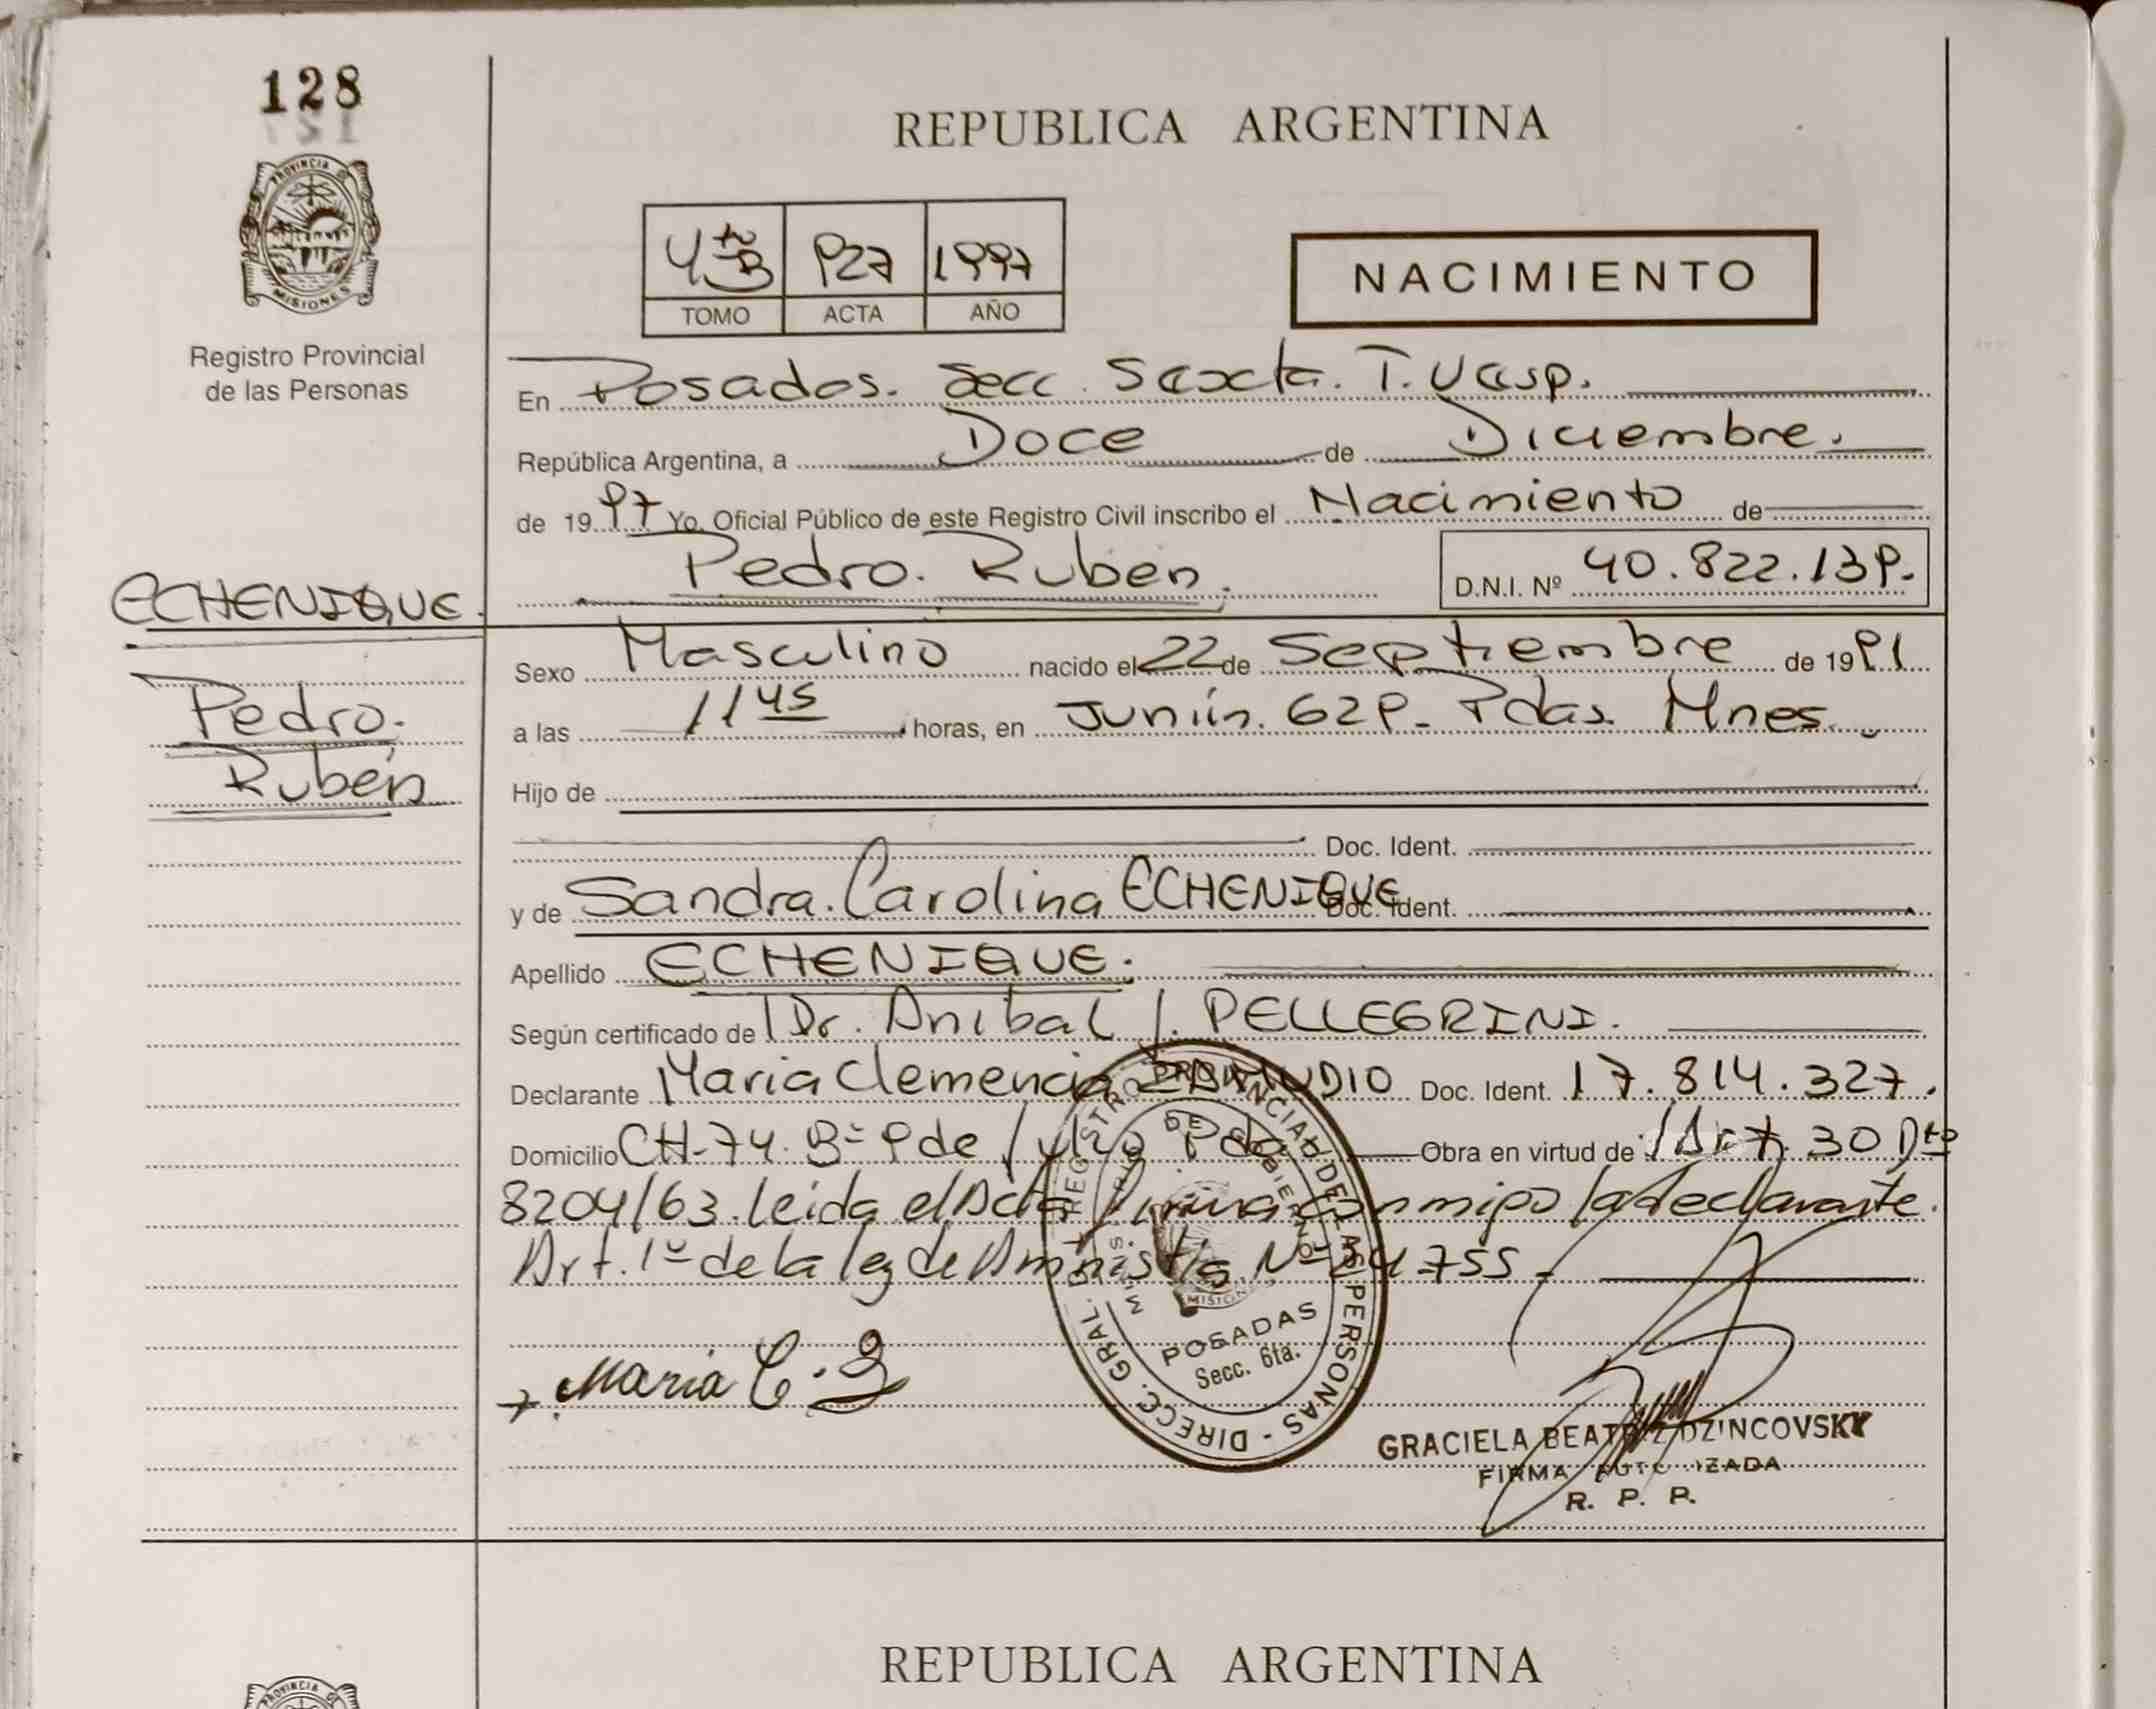 128
PROVINCIA DE
MISIONES
Registro Provincial
de las Personas
REPUBLICA ARGENTINA
4to B 927 1997
TOMO ACTA AÑO
NACIMIENTO
En Posadas. Secc. Sexta. T. Vesp.
República Argentina, a Doce de Diciembre.
de 1997 Yo, Oficial Público de este Registro Civil inscribo el Nacimiento de
Pedro. Rubén. D.N.I. Nº 40.822.139.
ECHENIQUE.
Pedro.
Rubén
Sexo Masculino nacido el 22 de Septiembre de 1991
a las 11 45 horas, en Junín. 629. Pdas. Mnes.
Hijo de
Doc. Ident.
y de Sandra. Carolina ECHENIQUE Doc. Ident.
Apellido ECHENIQUE.
Según certificado de Dr. Anibal J. PELLEGRINI.
Declarante Maria Clemencia Doc. Ident. 17.814.327.
Domicilio CH-74. Bº 9 de Julio Pdas Obra en virtud de Art. 30 Dto
8204/63. leida el Acta firma conmigo la declarante.
Art. 1º de la ley de Amnistia Nº 24.755
Maria C. Z
DIRECC. GRAL. DEL REGISTRO PROVINCIAL DE LAS PERSONAS
MINIS. DE GOBIERNO
MISIONES
POSADAS
Secc. 6ta.
GRACIELA BEATRIZ DZINCOVSKY
FIRMA AUTORIZADA
R. P. P.
REPUBLICA ARGENTINA
PROVINCIA DE